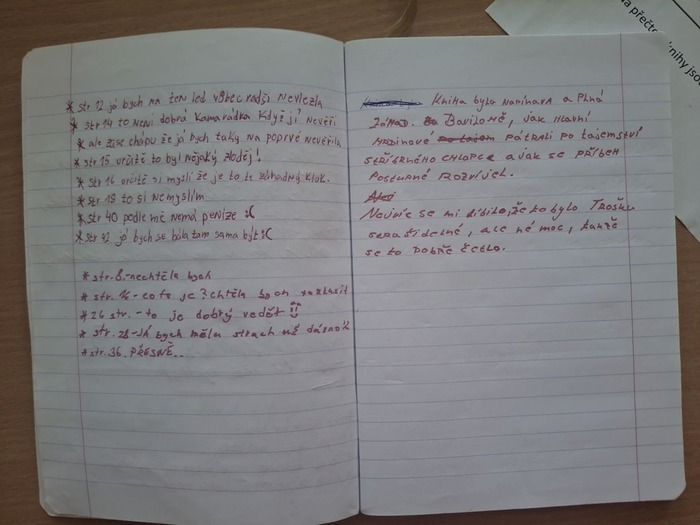 * str 12 já bych na ten led vůbec radši nevlezla
* str 14 to není dobrá kamarádka když jí nevěří
* ale zase chápu že já bych taky na poprvé nevěřila
* str 15 určitě to byl nějaký zloděj!
* str 16 určitě si myslí že je to ten záhadný kluk.
* str 18 to si nemyslím
* str 40 podle mě nemá peníze :(
* str 42 já bych se bála tam sama být :(
* str. 8. - nechtěla bych
* str. - co to je? chtěla bych
* 26 str. - to je dobrý vědět !!
* str. 28 - já bych měla strach už dávno
* str. 36. PŘESNĚ..
Kniha byla napínavá a plná
záhad. Bavilo mě, jak hlavní
hrdinové pátrali po tajemství
stříbrného chlapce a jak se příběh
postupně rozvíjel.
Nejvíc se mi líbilo, že to bylo trošku
strašidelné, ale né moc, takže
se to dobře četlo.
a přečte
nihy jso